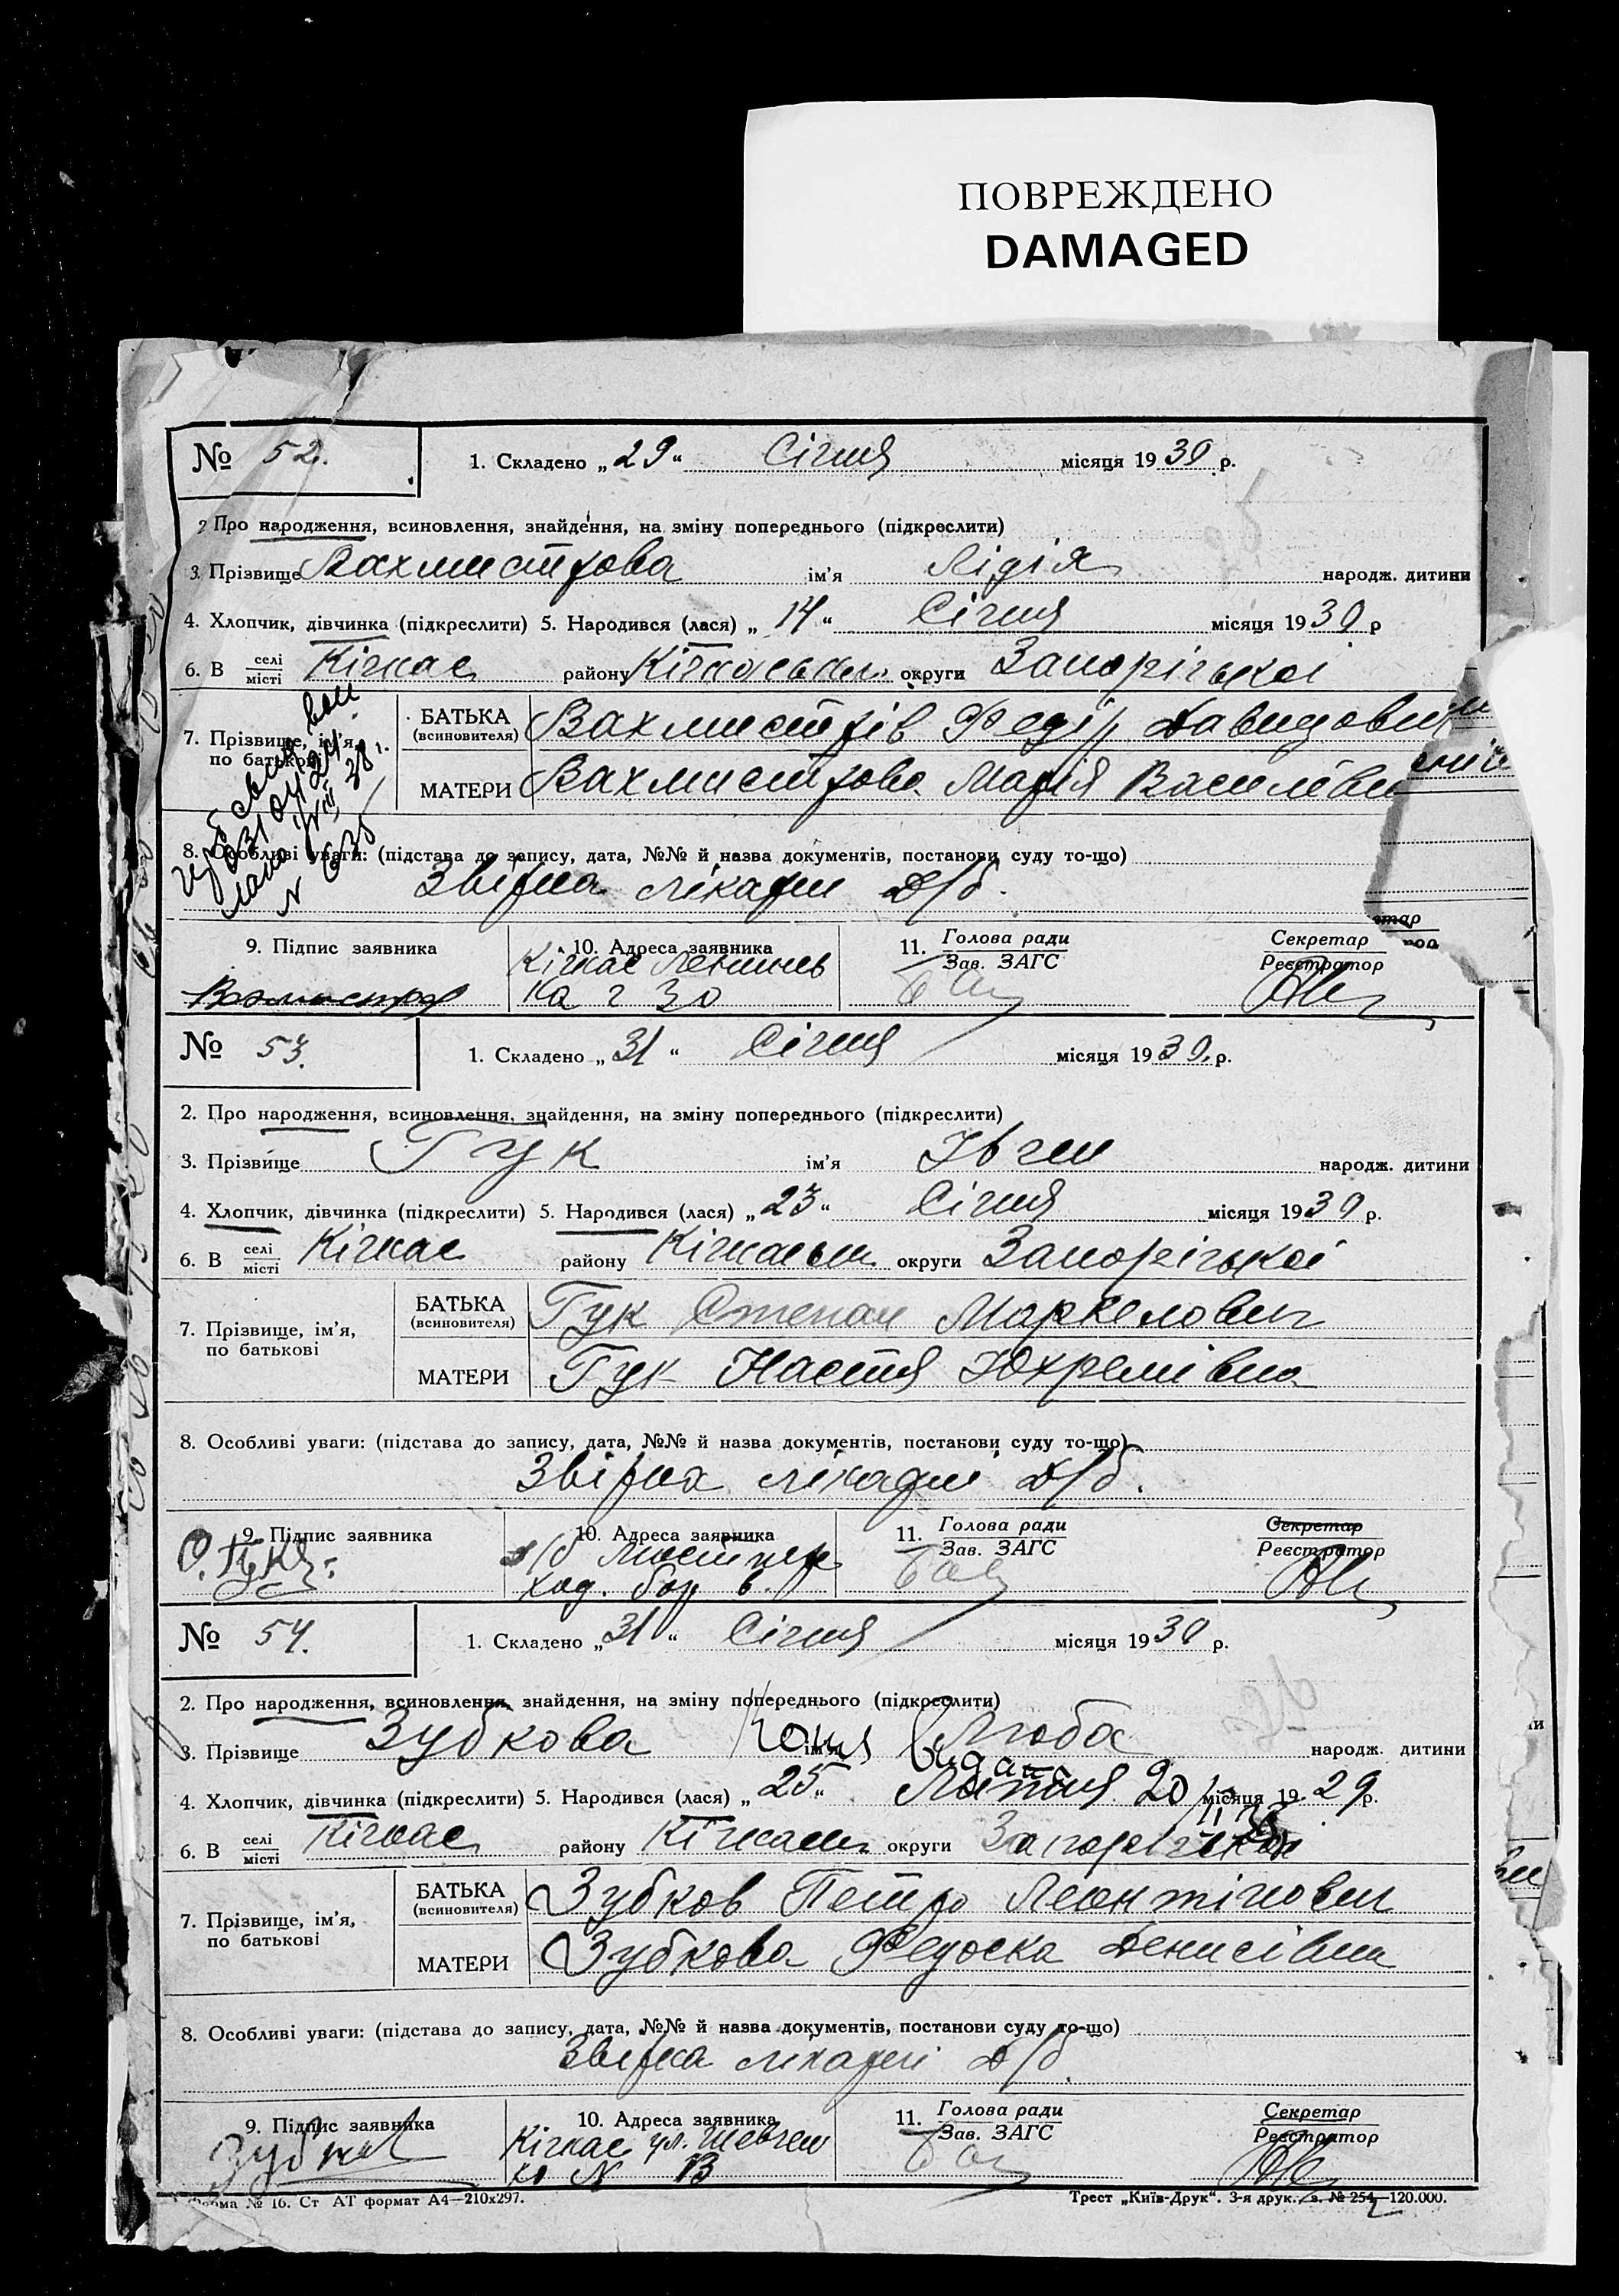 ПОВРЕЖДЕНО
DAMAGED
№ 52. 1. Складено „29“ Січня місяця 1930 р.
2 Про народження, всиновлення, знайдення, на зміну попереднього (підкреслити)
3. Прізвище Вахмистрова ім’я Лідія народж. дитини
4. Хлопчик, дівчинка (підкреслити) 5. Народився (лася) „14“ Січня місяця 1930 р
6. В селі місті Кічкас району Кічкаськ. округи Запорізької
7. Прізвище, ім’я, по батькові
БАТЬКА (всиновителя) Вахмистрів Федір Давидович
МАТЕРИ Вахмистрова Марія Василівн
8. Особливі уваги: (підстава до запису, дата, №№ й назва документів, постанови суду то-що)
Звірка лікарні Д/б.
9. Підпис заявника 10. Адреса заявника 11. Голова ради Зав. ЗАГС Секретар Реєстратор
Кічкас Ленинсь
ка 2 30
№ 53. 1. Складено „31“ Січня місяця 1930. р.
2. Про народження, всиновлення, знайдення, на зміну попереднього (підкреслити)
3. Прізвище Гук ім’я Івген народж. дитини
4. Хлопчик, дівчинка (підкреслити) 5. Народився (лася) „23“ Січня місяця 1930 р.
6. В селі місті Кічкас району Кічкаськ. округи Запорізької
7. Прізвище, ім’я, по батькові
БАТЬКА (всиновителя) Гук Степан Маркелович
МАТЕРИ Гук Настя Юхремівна
8. Особливі уваги: (підстава до запису, дата, №№ й назва документів, постанови суду то-що)
Звірка лікарні Д/б.
9. Підпис заявника 10. Адреса заявника 11. Голова ради Зав. ЗАГС Секретар Реєстратор
О. Гук
№ 54. 1. Складено „31“ Січня місяця 1930 р.
2. Про народження, всиновлення, знайдення, на зміну попереднього (підкреслити)
3. Прізвище Зубкова Копия ім’я Люба народж. дитини
видана
4. Хлопчик, дівчинка (підкреслити) 5. Народився (лася) „25“ Липня 20/ місяця 1929 р.
6. В селі місті Кічкас району Кічкаськ округи Запорізької
7. Прізвище, ім’я, по батькові
БАТЬКА (всиновителя) Зубков Петро Леонтійович
МАТЕРИ Зубкова Федоска Денисівна
8. Особливі уваги: (підстава до запису, дата, №№ й назва документів, постанови суду то-що)
Звірка лікарні Д/б.
9. Підпис заявника 10. Адреса заявника 11. Голова ради Зав. ЗАГС Секретар Реєстратор
Зубков Кічкас ул. Шевчен
ко N
Форма № 16. Ст АТ формат А4—210х297. Трест „Київ-Друк“. 3-я друк. з. № 254—120.000.